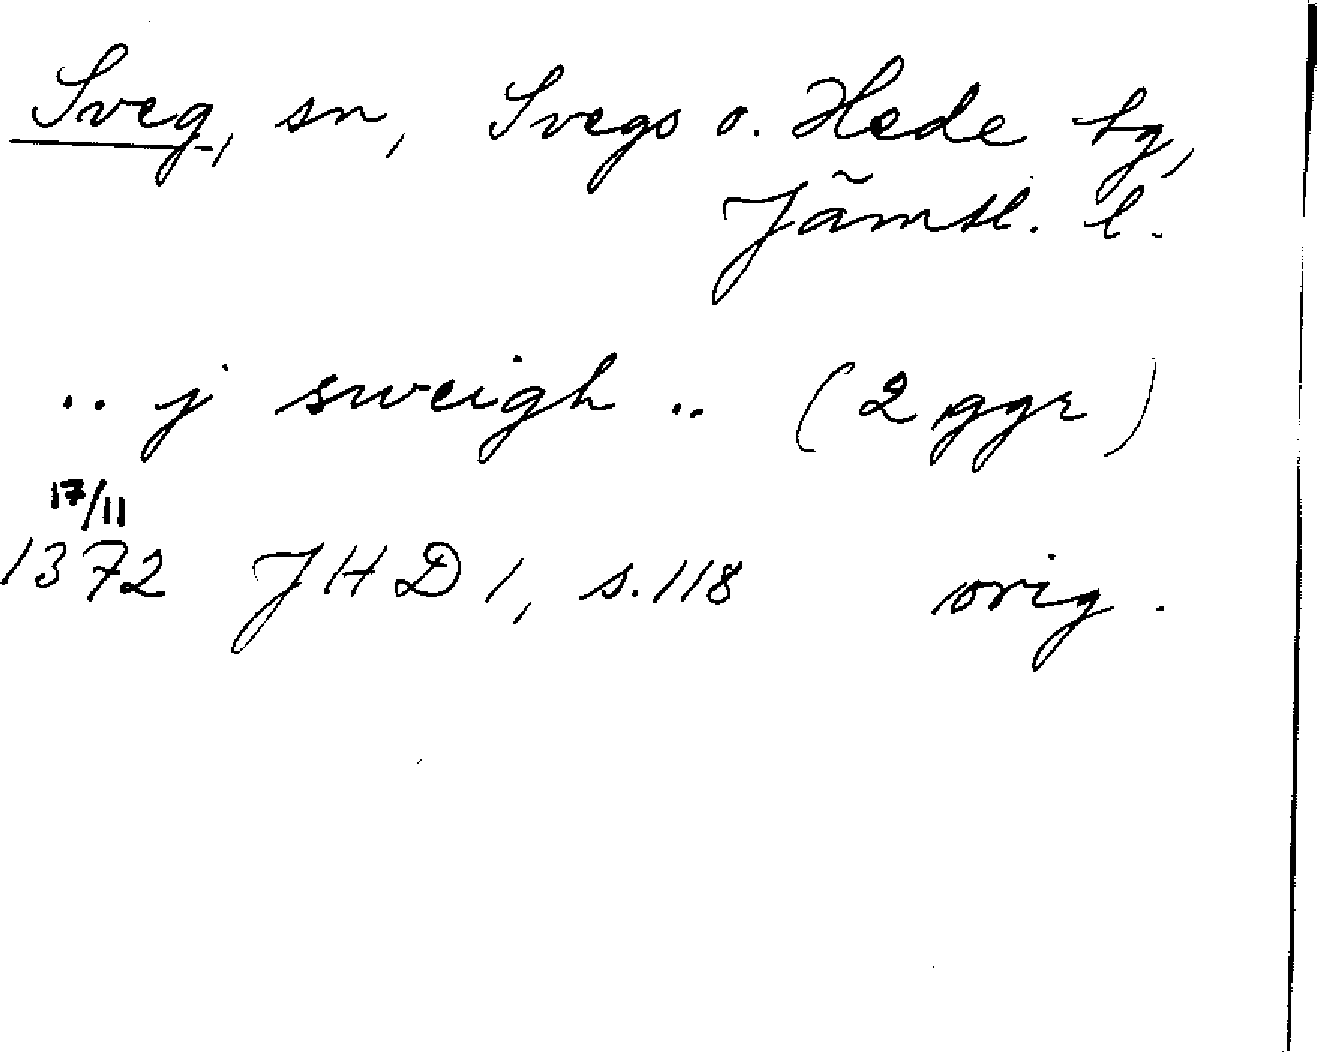 Sveg, sn, Svegs o. Hede tg,
Jämtl. l.
.. j sweigh .. (2 ggr)
17/11
1372 JHD 1, s. 118 orig.